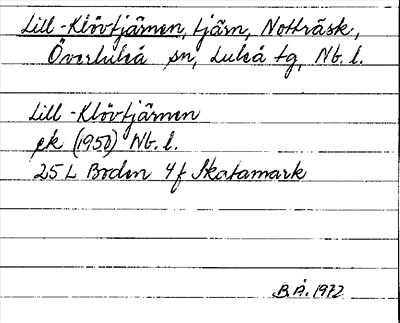 Lill-Klövtjärnen, tjärn, Notträsk,
Överluleå sn, Luleå tg, Nb. l.
Lill-Klövtjärnen
ek (1950) Nb. l.
25 L Boden 4f Skatamark
B.Å. 1972